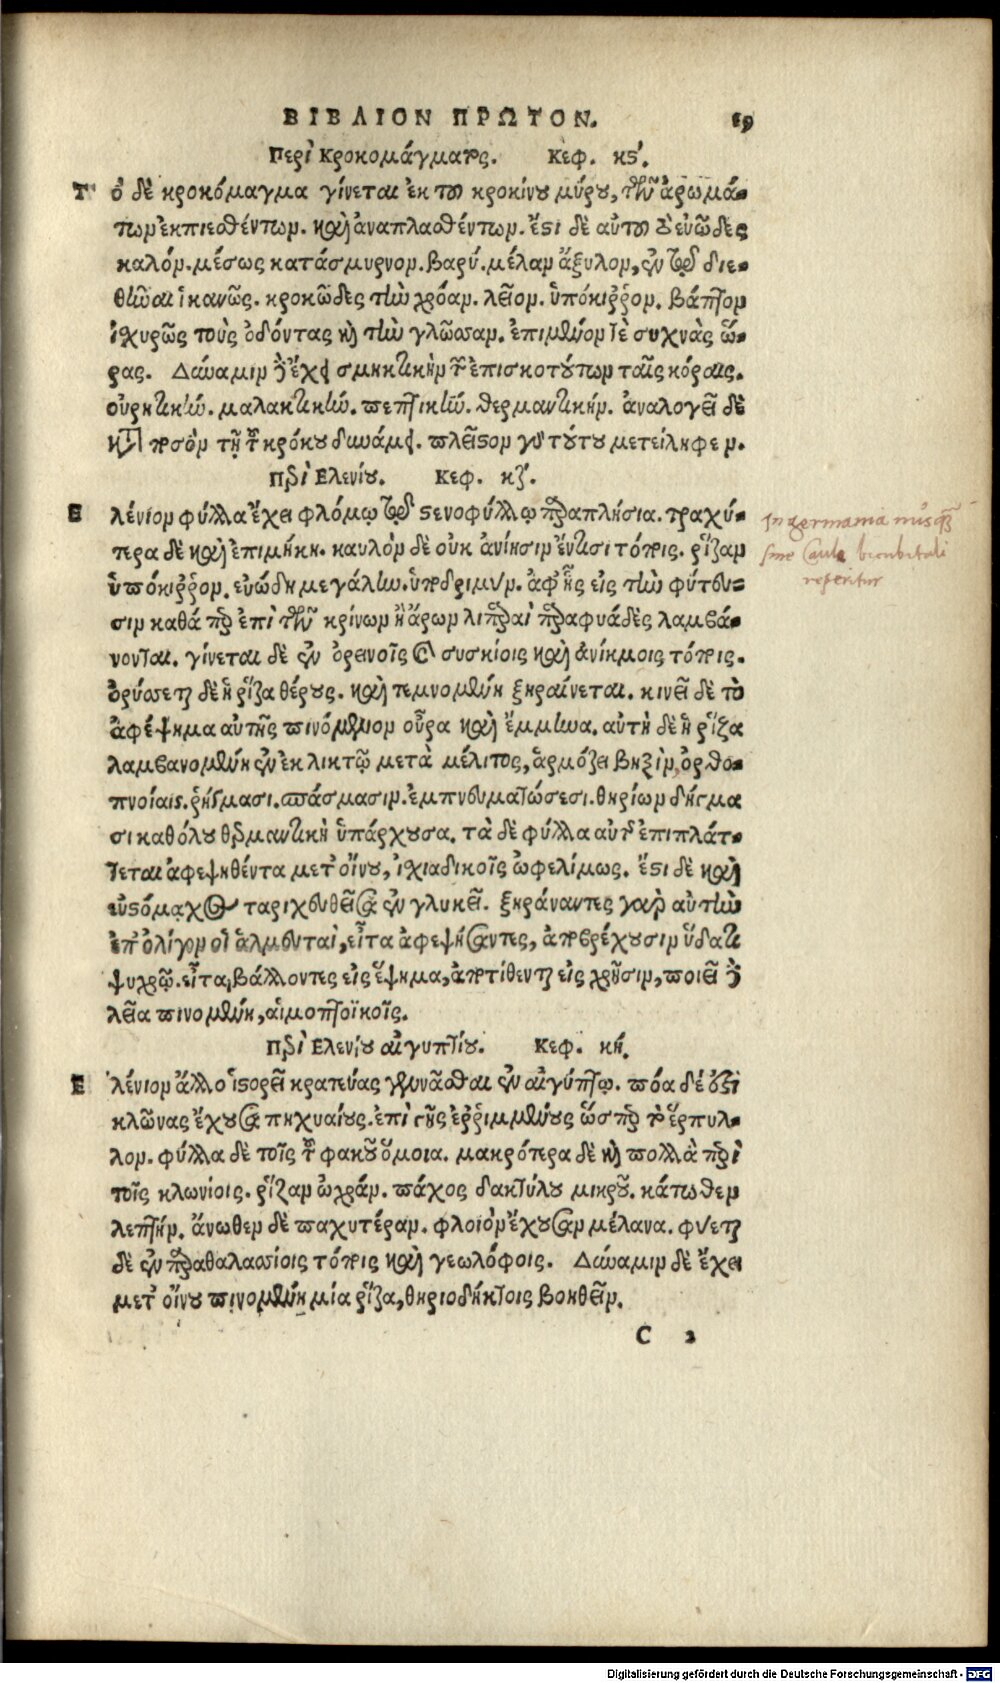 ΒΙΒΛΙΟΝ ΠΡΩΤΟΝ. 19
Περὶ Κροκομάγματος. Κεφ. κϛ´.
Τ ὸ δὲ κροκόμαγμα γίνεται ἐκ τοῦ κροκίνου μύρου, τῶν ἀρωμά-
των ἐκπιεσθέντων. καὶ ἀναπλασθέντων. ἔστι δὲ αὐτοῦ τὸ εὐῶδες
καλόν. μέσως κατάσμυρνον. βαρύ. μέλαν ἄξυλον, ἐν τῷ διε-
θῆναι ἱκανῶς. κροκῶδες τὴν χρόαν. λεῖον. ὑπόκιῤῥον. βάπτον
ἰχυρῶς τοὺς ὀδόντας καὶ τὴν γλῶσσαν. ἐπιμένον τε συχνὰς ὥ-
ρας. Δύναμιν δὲ ἔχει σμηκτικὴν τῶν ἐπισκοτούντων ταῖς κόραις.
οὐρητικήν. μαλακτικήν. πεπτικήν. θερμαντικήν. ἀναλογεῖ δὲ
κατὰ ποσὸν τῇ τοῦ κρόκου δυνάμει. πλεῖστον γὰρ τούτου μετείληφεν.
Περὶ Ελενίου. Κεφ. κζ´.
Ε λένιον φύλλα ἔχει φλόμῳ τῷ στενοφύλλῳ παραπλήσια. τραχύ-
τερα δὲ καὶ ἐπιμήκη. καυλὸν δὲ οὐκ ἀνίησιν ἔν τισι τόποις. ῥίζαν
ὑπόκιῤῥον. εὐώδη μεγάλην. ὑπόδριμυν. ἀφ᾽ ἧς εἰς τὴν φύτευ-
σιν καθάπερ ἐπὶ τῶν κρίνων ἢ ἄρων λιπαραὶ παραφυάδες λαμβά-
νονται. γίνεται δὲ ἐν ὀρεινοῖς καὶ συσκίοις καὶ ἀνίκμοις τόποις.
ὀρύσσεται δὲ ἡ ῥίζα θέρους. καὶ τεμνομένη ξηραίνεται. κινεῖ δὲ τὸ
ἀφέψημα αὐτῆς πινόμενον οὖρα καὶ ἔμμηνα. αὐτὴ δὲ ἡ ῥίζα
λαμβανομένη ἐν ἐκλικτῷ μετὰ μέλιτος, ἁρμόζει βηξὶν, ὀρθο-
πνοίαις. ῥήγμασι. σπάσμασιν. ἐμπνευματώσεσι. θηρίων δήγμα
σι καθόλου θερμαντικὴ ὑπάρχουσα. τὰ δὲ φύλλα αὐτῆς ἐπιπλάτ-
τεται ἀφεψηθέντα μετ᾽ οἴνου, ἰχιαδικοῖς ὠφελίμως. ἔστι δὲ καὶ
εὐστόμαχος ταριχευθεῖσα ἐν γλυκεῖ. ξηράναντες γὰρ αὐτὴν
ἐπ᾽ ὀλίγον οἱ ἁλμευταὶ, εἶτα ἀφεψήσαντες, ἀποβρέχουσιν ὕδατι
ψυχρῷ. εἶτα βάλλοντες εἰς ἕψημα, ἀποτίθενται εἰς χρῆσιν, ποιεῖ δὲ
λεῖα πινομένη, αἱμοπτοϊκοῖς.
Περὶ Ελενίου αἰγυπτίου. Κεφ. κή.
Ε λένιον ἄλλο ἱστορεῖ κρατεύας γεννᾶσθαι ἐν αἰγύπτῳ. πόα δέ ἐστι
κλῶνας ἔχουσα πηχυαίους. ἐπὶ γῆς ἐῤῥιμμένους ὥσπερ τὸ ἕρπυλ-
λον. φύλλα δὲ τοῖς τοῦ φακοῦ ὅμοια. μακρότερα δὲ καὶ πολλὰ περὶ
τοῖς κλωνίοις. ῥίζαν ὠχράν. πάχος δακτύλου μικροῦ. κάτωθεν
λεπτήν. ἄνωθεν δὲ παχυτέραν. φλοιὸν ἔχουσαν μέλανα. φύεται
δὲ ἐν παραθαλασσίοις τόποις καὶ γεωλόφοις. Δύναμιν δὲ ἔχει
μετ᾽ οἴνου πινομένη μία ῥίζα, θηριοδήκτοις βοηθεῖν.
C 2
In germania nusquam
sine caule bicubitali
reperitur
Digitalisierung gefördert durch die Deutsche Forschungsgemeinschaft - DFG